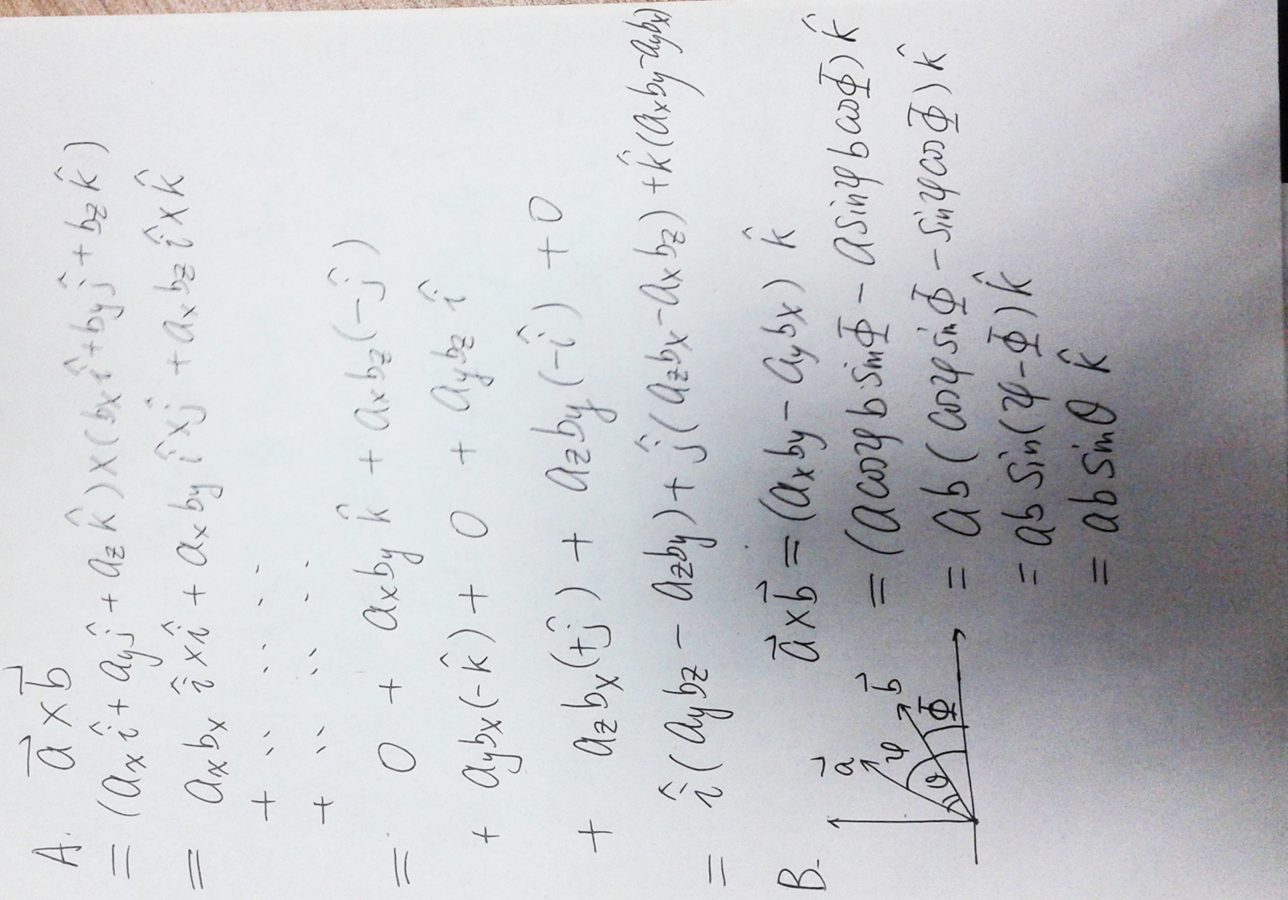 A. $\vec{a} \times \vec{b}$
$= (a_x\hat{i} + a_y\hat{j} + a_z\hat{k}) \times (b_x\hat{i} + b_y\hat{j} + b_z\hat{k})$
$= a_xb_x\,\hat{i}\times\hat{i} + a_xb_y\,\hat{i}\times\hat{j} + a_xb_z\,\hat{i}\times\hat{k}$
+ .. .. .
+ .. .. .
$= 0 + a_xb_y\hat{k} + a_xb_z(-\hat{j})$
$+ a_yb_x(-\hat{k}) + 0 + a_yb_z\hat{i}$
$+ a_zb_x(+\hat{j}) + a_zb_y(-\hat{i}) + 0$
$= \hat{i}(a_yb_z - a_zb_y) + \hat{j}(a_zb_x - a_xb_z) + \hat{k}(a_xb_y - a_yb_x)$
B. $\vec{a}$ $\psi$ $\vec{b}$ $\theta$ $\Phi$
$\vec{a}\times\vec{b} = (a_xb_y - a_yb_x)\hat{k}$
$= (a\cos\psi\, b\sin\Phi - a\sin\psi\, b\cos\Phi)\hat{k}$
$= ab(\cos\psi\sin\Phi - \sin\psi\cos\Phi)\hat{k}$
$= ab\sin(\psi - \Phi)\hat{k}$
$= ab\sin\theta\,\hat{k}$